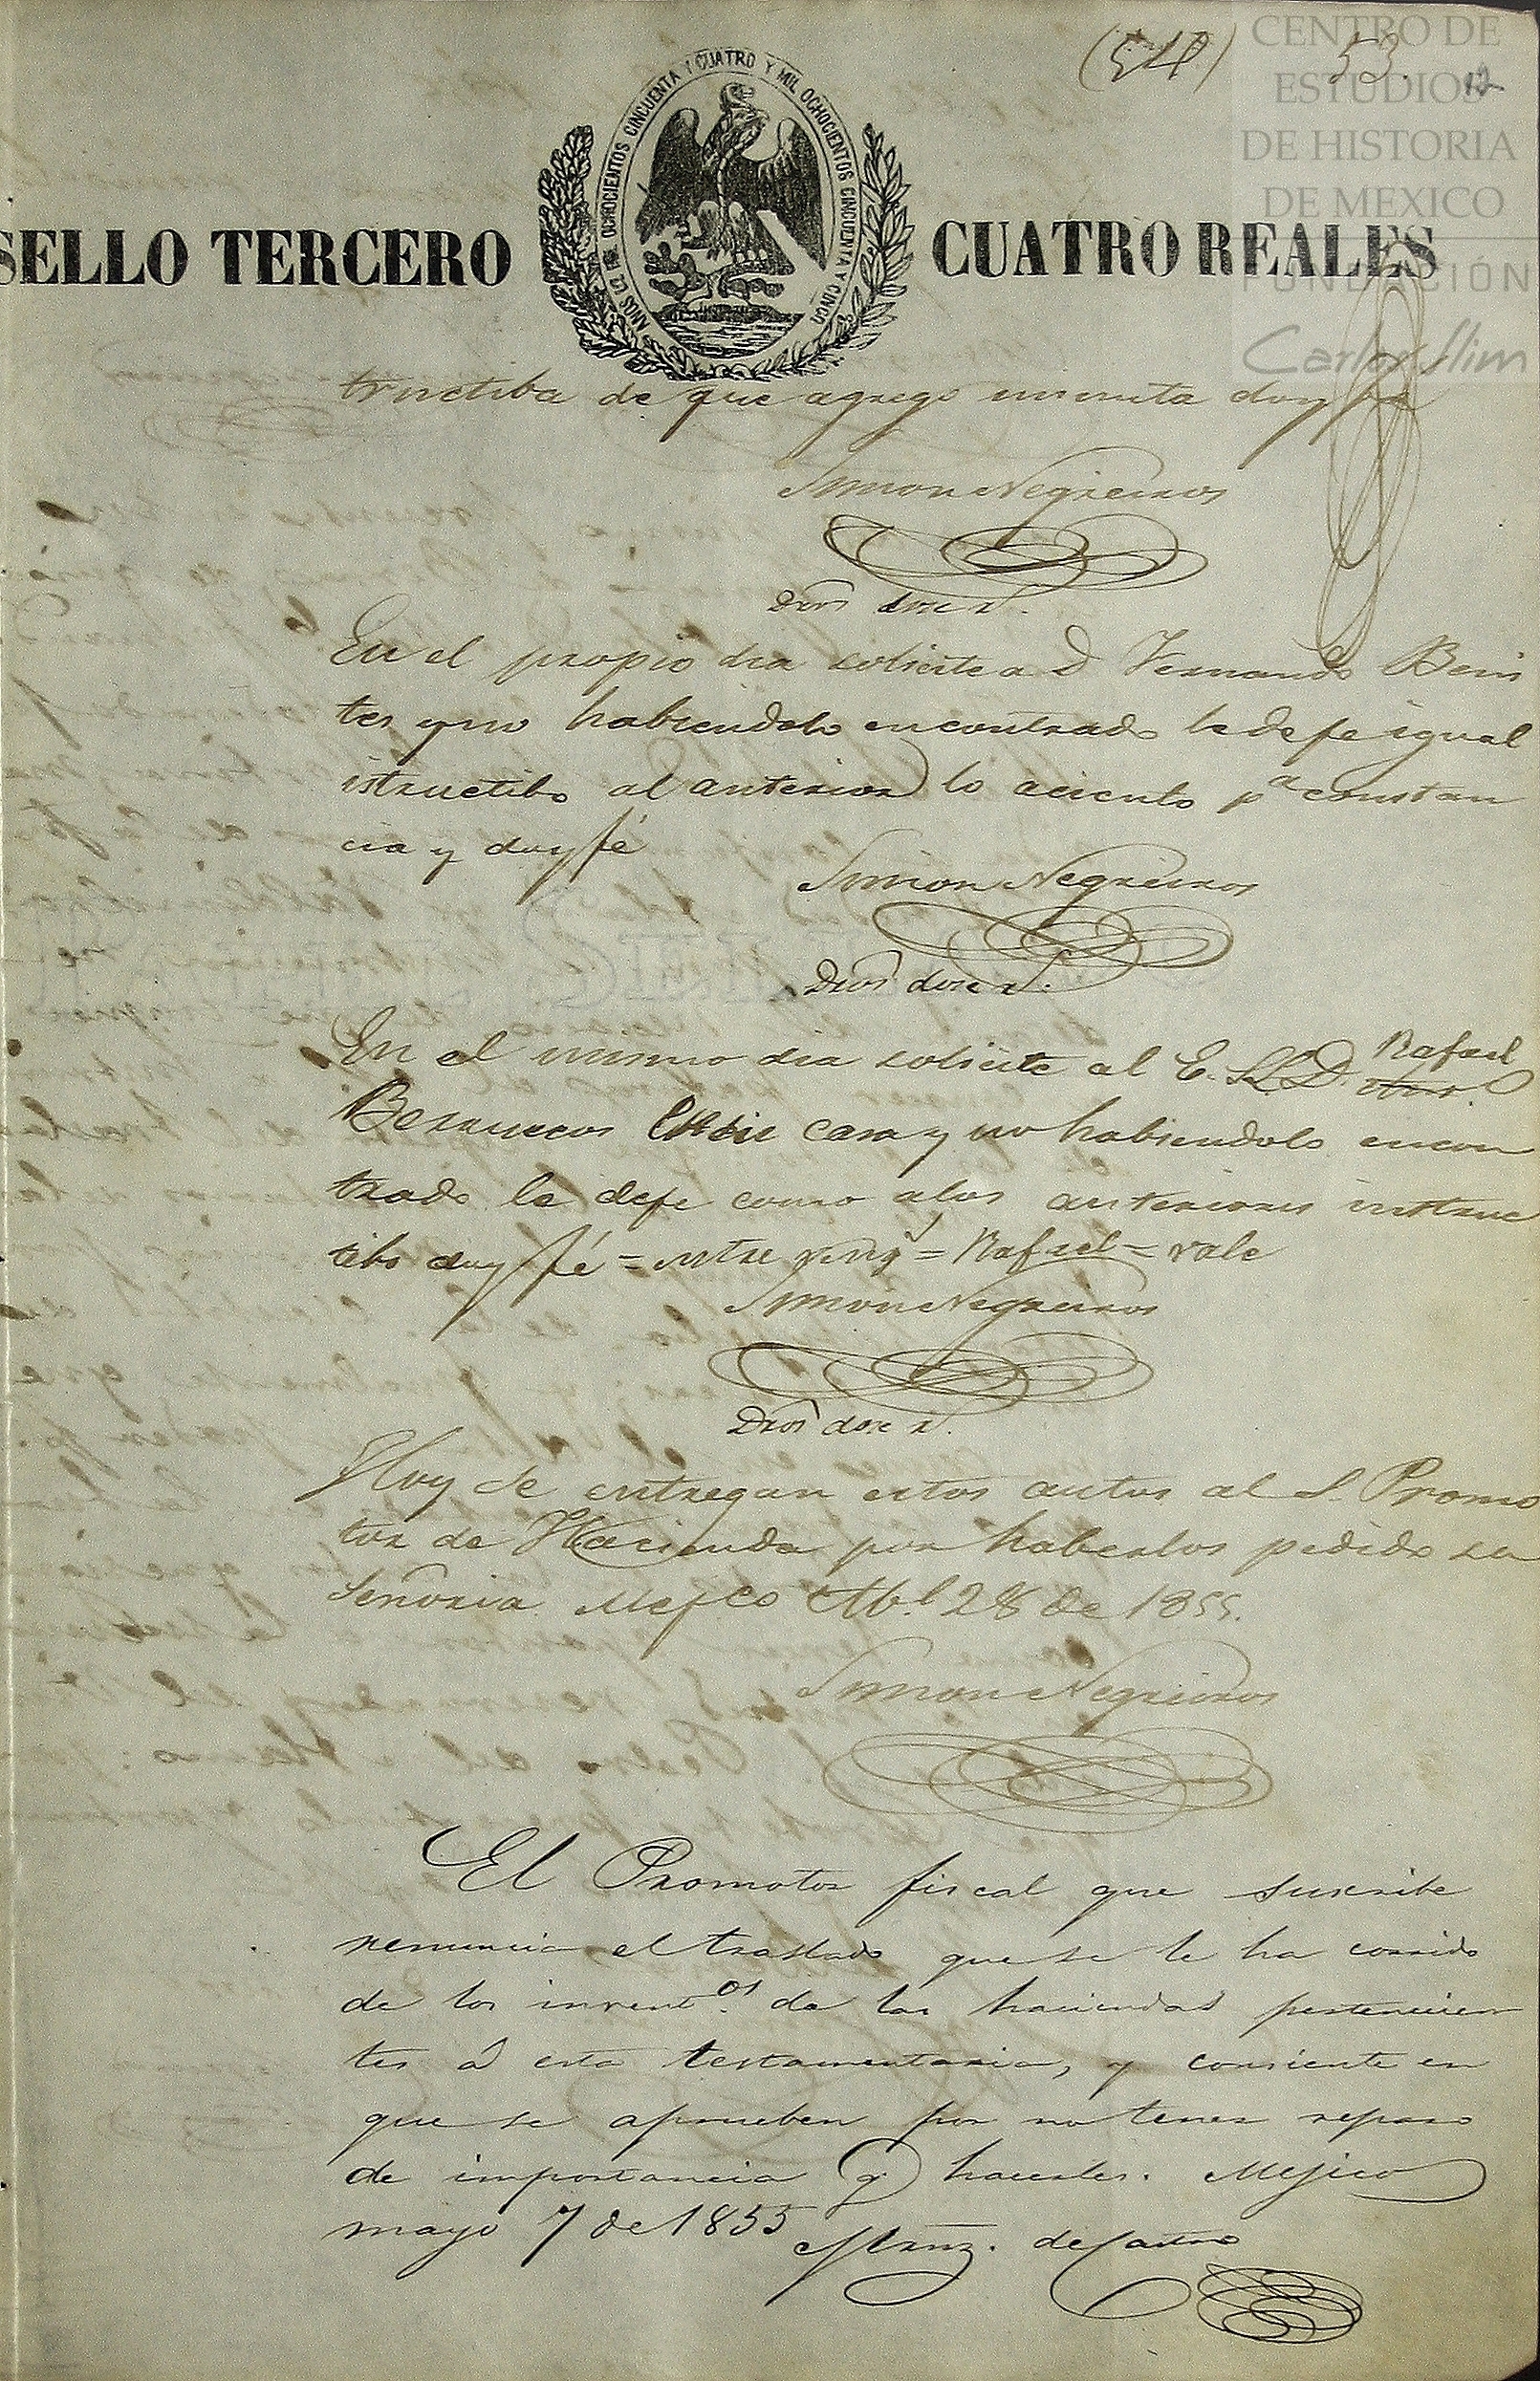 (54) 53. 12
CENTRO DE
ESTUDIOS
DE HISTORIA
DE MEXICO
FUNDACIÓN
Carlos Slim
SELLO TERCERO
AÑOS DE MIL OCHOCIENTOS CINCUENTA Y CUATRO Y MIL OCHOCIENTOS CINCUENTA Y CINCO
CUATRO REALES
tructiba de que agrego minuta doy fe
Simon Negreiros
Dros doce r.
En el propio dia solicite a D Fernando Beni
tes y no habiendolo encontrado le dejé igual
istructibo al anterior lo aciento pa constan
cia y doy fé
Simon Negreiros
Dros doce r.
En el mismo dia solicite al E. S. D. Rafael
Berruecos en su casa y no habiendolo encon
trado le deje como a los anteriores instruc
tibo doy fé = entre reng = Rafael = vale
Simon Negreiros
Dros doce r.
Hoy se entregan estos autos al S. Promo
tor de Hacienda por haberlos pedido su
Señoria Mejco Abl 28 de 1855.
Simon Negreiros
El Promotor fiscal que suscribe
renuncia el traslado que se le ha corrido
de los invent.os de las haciendas pertenecien
tes á esta testamentaria, y consiente en
que se aprueben por no tener reparo
de importancia q. hacerles. Mejico
mayo 7 de 1855
Mrnz. de Castro